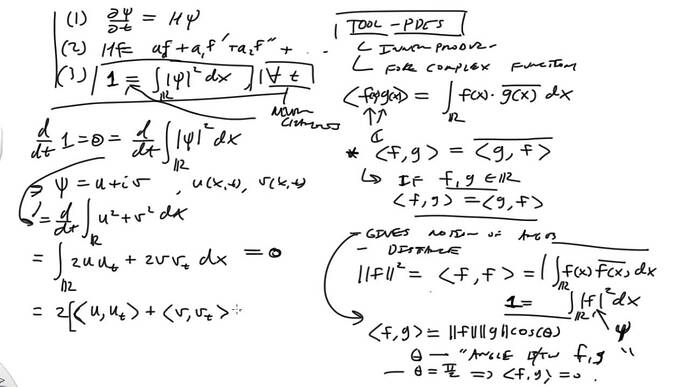 (1) ∂ψ/∂t = Hψ
(2) Hf = af + a₁f' + a₂f'' + . . .
(3) 1 = ∫_ℝ |ψ|² dx, ∀ t
d/dt 1 = 0 = d/dt ∫_ℝ |ψ|² dx
⇒ ψ = u + iv , u(x,t), v(x,t)
= d/dt ∫_ℝ u² + v² dx
= ∫_ℝ 2u u_t + 2v v_t dx = 0
= 2[⟨u, u_t⟩ + ⟨v, v_t⟩
TOOL - PDES
INNER PRODUCT
FOR COMPLEX FUNCTION
⟨f(x), g(x)⟩ = ∫_ℝ f(x) · \overline{g(x)} dx
ℂ
* ⟨f, g⟩ = \overline{⟨g, f⟩}
↳ IF f, g ∈ ℝ
⟨f, g⟩ = ⟨g, f⟩
- GIVES NOTION OF
- DISTANCE
||f||² = ⟨f, f⟩ = ∫_ℝ f(x) \overline{f(x)} dx
1 = ∫_ℝ |f|² dx
ψ
⟨f, g⟩ = ||f|| ||g|| cos(θ)
θ — "ANGLE BTW f, g"
— θ = π/2 ⇒ ⟨f, g⟩ = 0.